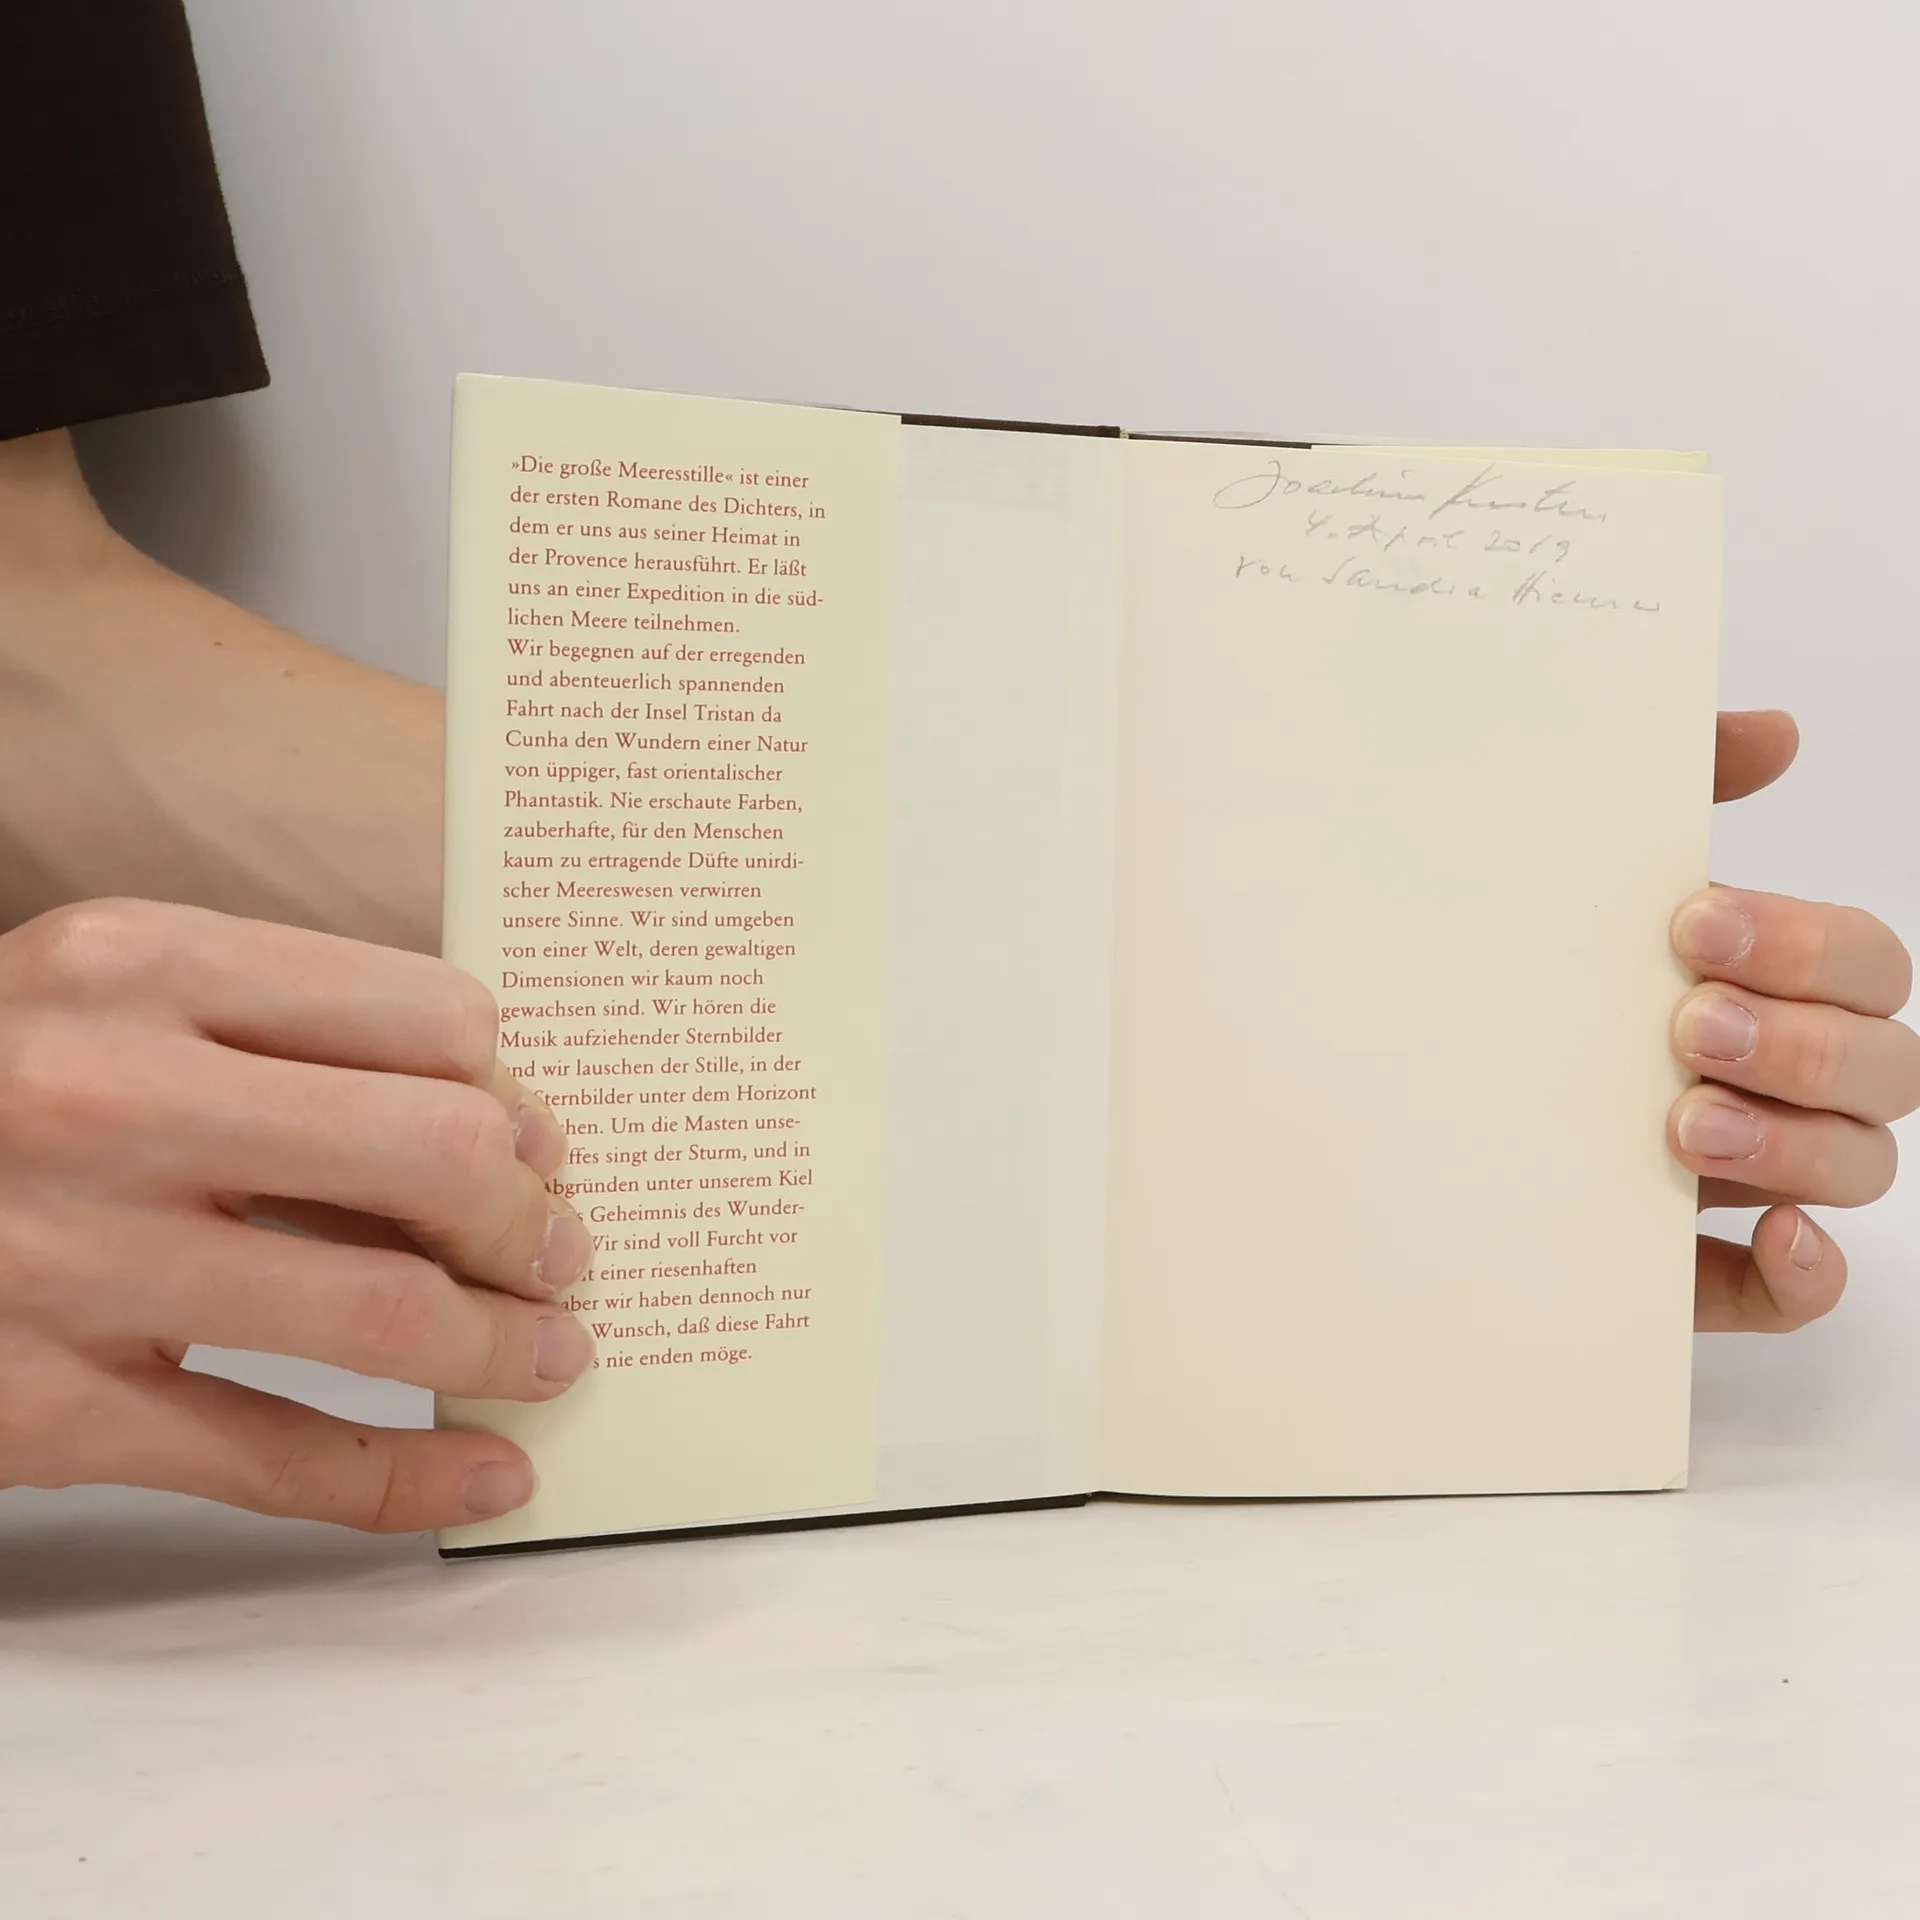 »Die große Meeresstille« ist einer
der ersten Romane des Dichters, in
dem er uns aus seiner Heimat in
der Provence herausführt. Er läßt
uns an einer Expedition in die süd-
lichen Meere teilnehmen.
Wir begegnen auf der erregenden
und abenteuerlich spannenden
Fahrt nach der Insel Tristan da
Cunha den Wundern einer Natur
von üppiger, fast orientalischer
Phantastik. Nie erschaute Farben,
zauberhafte, für den Menschen
kaum zu ertragende Düfte unirdi-
scher Meereswesen verwirren
unsere Sinne. Wir sind umgeben
von einer Welt, deren gewaltigen
Dimensionen wir kaum noch
gewachsen sind. Wir hören die
Musik aufziehender Sternbilder
und wir lauschen der Stille, in der
Sternbilder unter dem Horizont
Um die Masten unse-
singt der Sturm, und in
Abgründen unter unserem Kiel
Geheimnis des Wunder-
Wir sind voll Furcht vor
einer riesenhaften
aber wir haben dennoch nur
Wunsch, daß diese Fahrt
nie enden möge.
Joachim
4. April 2019
von Sandra